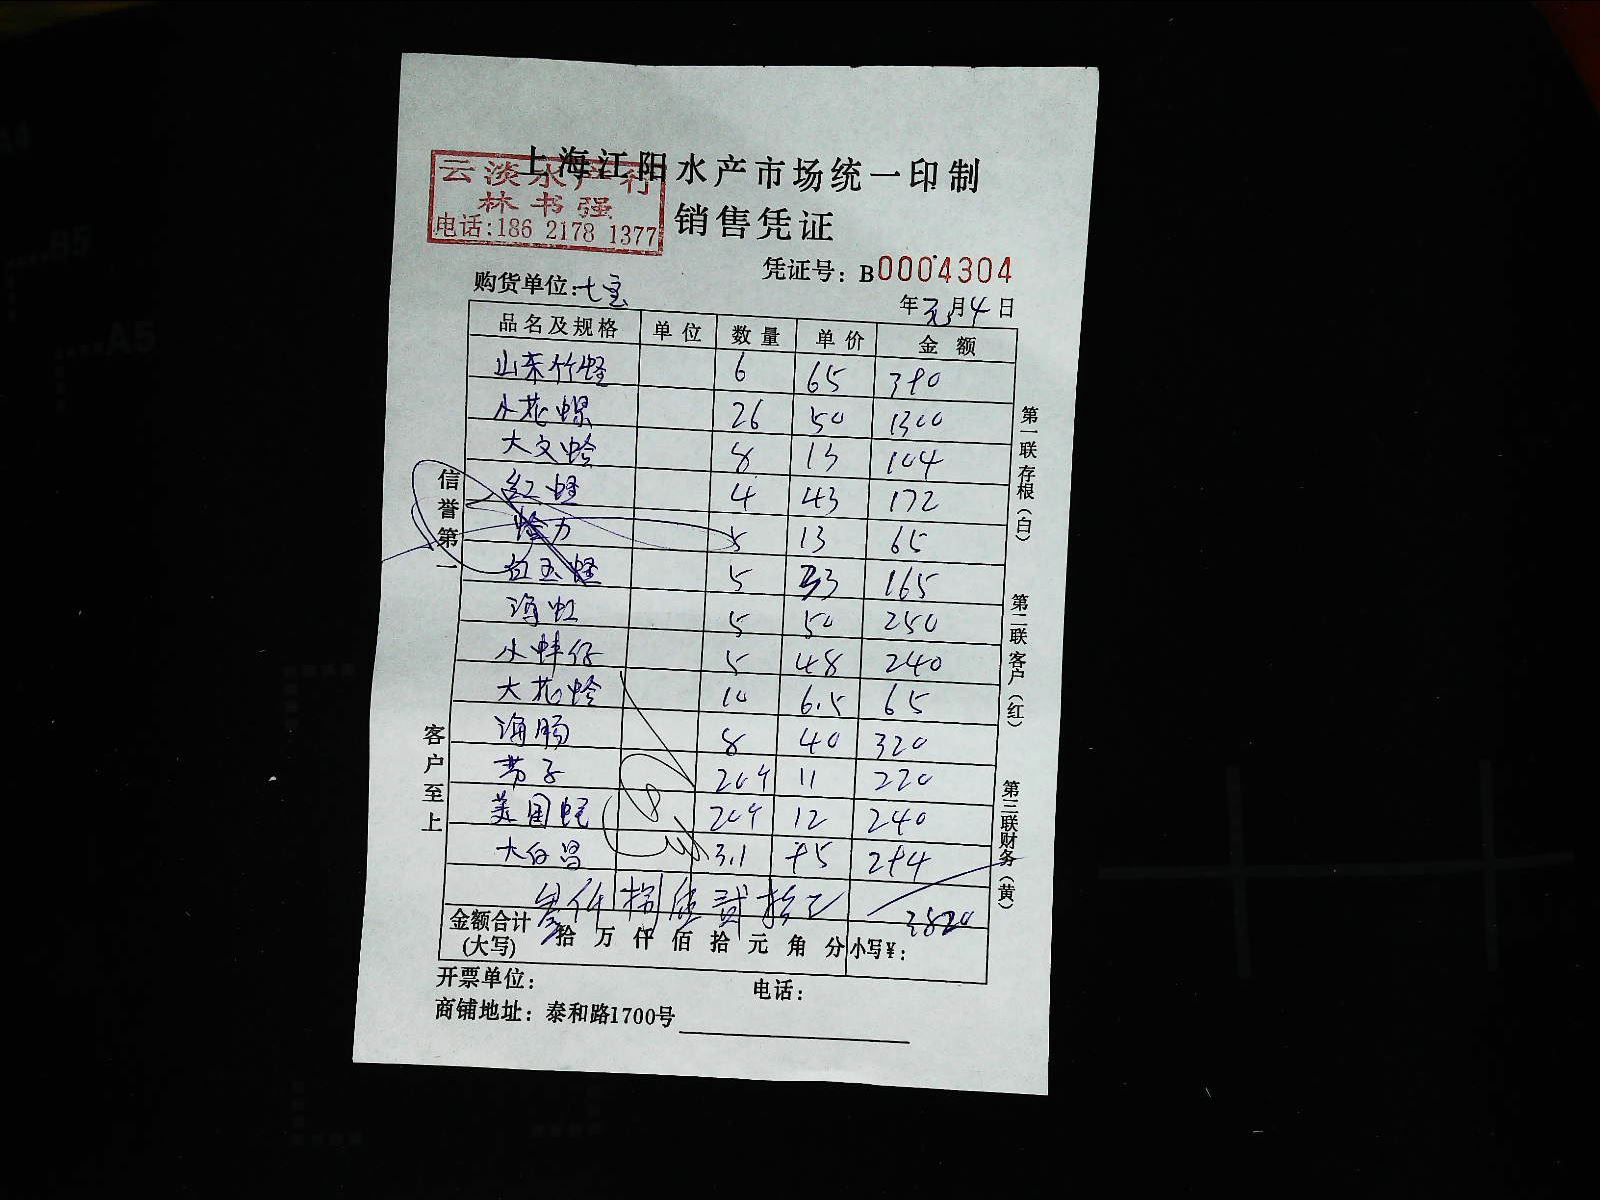 上海江阳水产市场统一印制
云淡水产行
林书强
电话:186 2178 1377
销售凭证
凭证号: B0004304
购货单位:七宝
年元月4日
品名及规格 单位 数量 单价 金额
山东竹蛏 6 65 390
小花螺 26 50 1300
大文蛤 8 13 104
红蛏 4 43 172
蛤力 5 13 65
白玉蛏 5 33 165
海虹 5 50 250
小蚌仔 5 48 240
大花蛤 10 6.5 65
海肠 8 40 320
芀子 20斤 11 220
美国蚝 20斤 12 240
大白昌 3.1 95 294
叁仟捌佰贰拾元 3820
金额合计(大写) 拾 万 仟 佰 拾 元 角 分 小写¥:
开票单位: 电话:
商铺地址: 泰和路1700号
信誉第一
客户至上
第一联 存根 (白)
第二联 客户 (红)
第三联 财务 (黄)